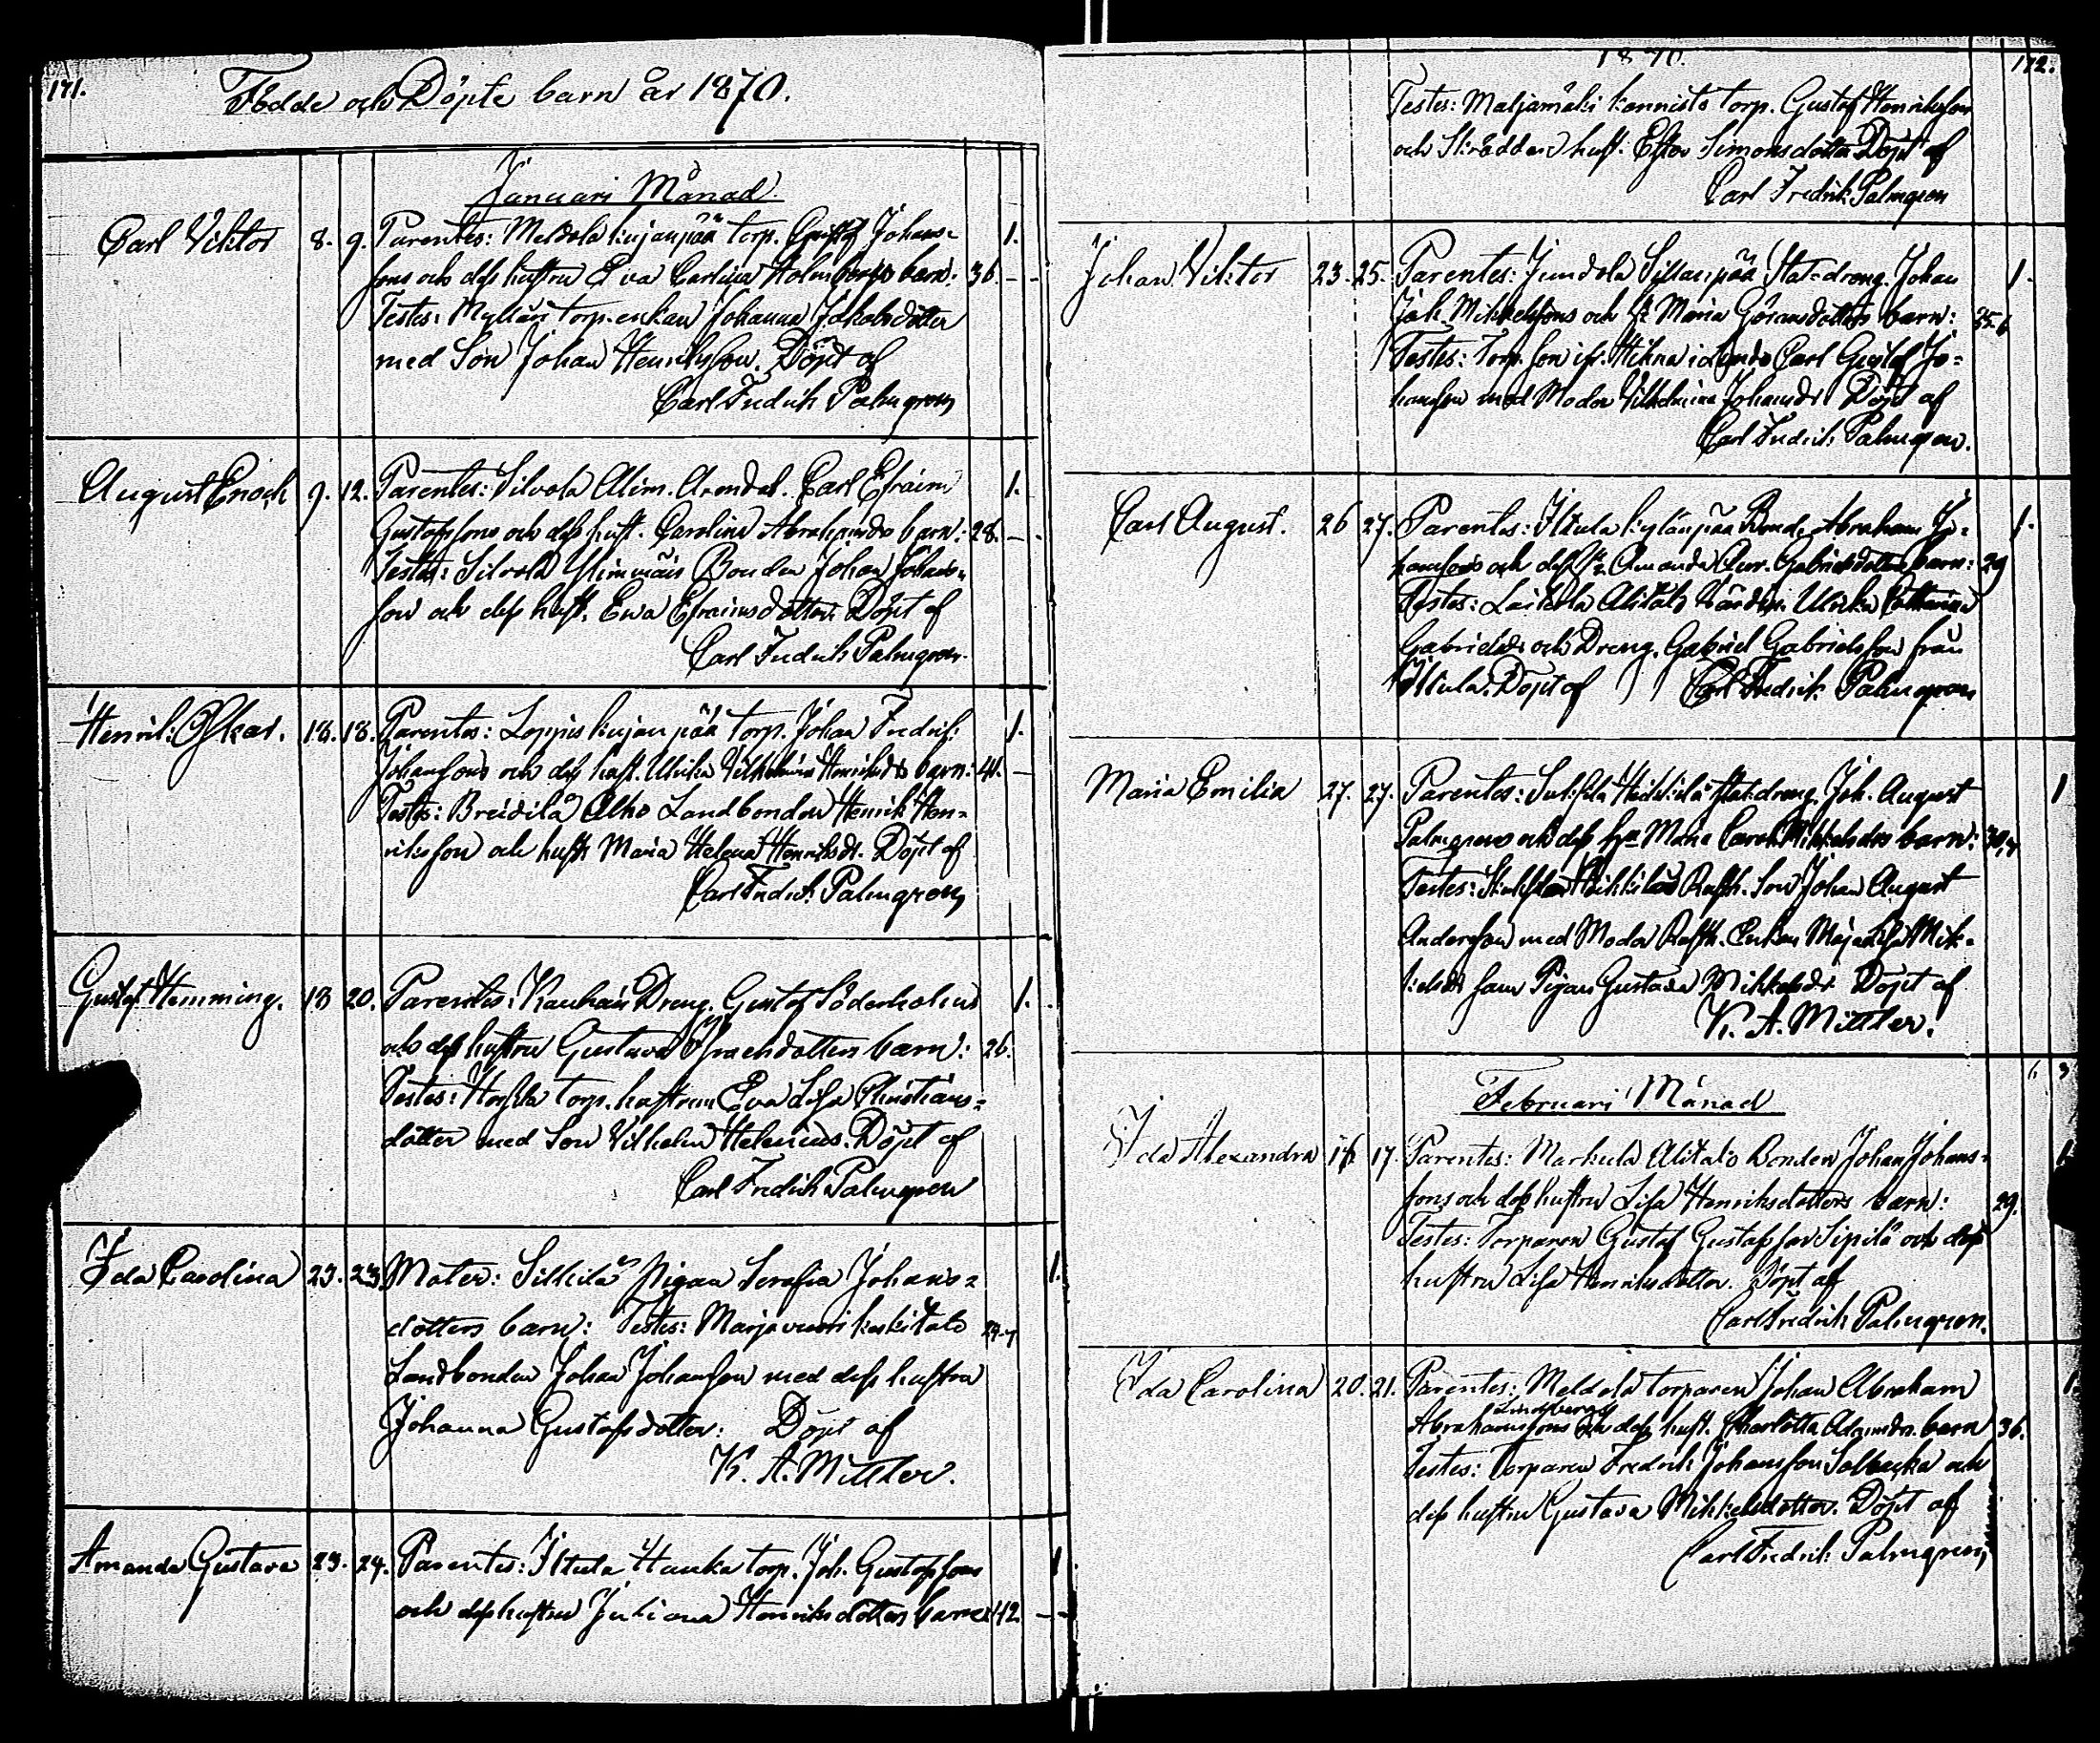 171.
Födde och Döpte barn år 1870.
Januari Månad.
Carl Viktor 8. 9. Parentes: Meldola kujanpää torp. Gustaf Johans= 1.
sons och dess hustru Eva Carlina Holmbergs barn: 36. -
Testes: Mylläri torp. enkan Johanna Jakobsdotter
med Son Johan Henriksson. Döpt af
Carl Fredrik Palmgren
August Enoch 9. 12. Parentes: Silvola Alim. Arendat. Carl Efraim 1.
Gustafssons och dess hust. Carolina Abrahamsdrs barn: 28. -
Testes: Silvola Ylimmäis Bonden Johan Johans=
son och dess hust. Ewa Efraimsdotter. Döpt af
Carl Fredrik Palmgren.
Henrik Oskar. 18. 18. Parentes: Loppis kujanpää torp. Johan Fredrik 1.
Johanssons och dess hust. Ulrika Vilhelmina Henriksdrs barn: 41. -
Testes: Breidilä Alho Landbonden Henrik Hen=
riksson och hustr. Maria Helena Henriksdr. Döpt af
Carl Fredrik Palmgren
Gustaf Hemming. 18 20. Parentes: Kauhais Dreng. Gustaf Söderholms 1.
och dess hustru Gustava Israelsdotters barn: 26.
Testes: torp. hustrun Eva Lisa Christians=
dotter med Son Vilhelm Helenius. Döpt af
Carl Fredrik Palmgren
Ida Carolina 23. 23. Mater: Sillilä Pigan Serafia Johans= 1.
dotters barn: Testes: Marjavuori keskitalo 24.7
Landbonden Johan Johansson med dess hustru
Johanna Gustafsdotter: Döpt af
K. A. Mittler.
Amanda Gustava 23. 24. Parentes: Iltula Hauka torp. Joh. Gustafssons 1
och dess hustru Juliana Henriksdotters barn: 42. -
1870. 172.
Testes: Maljamäki kannisto torp. Gustaf Henriksson
och Skräddar hust. Ester Simonsdotter Döpt af
Carl Fredrik Palmgren
Johan Viktor 23. 25. Parentes: Jundola Sillanpää Stat=dreng. Johan 1.
Jak. Mikkelssons och h: Maria Göransdotters barn: 35.6
Testes: Torp. son Carl Gustaf Jo=
hansson med Moder Vilhelmina Johansdr Döpt af
Carl Fredrik Palmgren.
Carl August. 26 27. Parentes: Iltula kylänpää Bond. Abraham Jo= 1.
hanssons och dess Amanda Gabrielsdotters barn: 29
Testes: Laikola Alitalo Ulrika Catharina
Gabrielsdr och Dreng. Gabriel Gabrielsson från
Iltula. Döpt af Carl Fredrik Palmgren
Maria Emilia 27. 27. Parentes: Heikkilä stat.dreng. Joh. August 1
Palmgrens och dess Maria Carol. Mikkelsdrs barn: 30,7
Testes: Heikkilä Rusth. Son Johan August
Andersson med Moder Rusth. Enkan Maja Lisa Mik=
kelsdr samt Pigan Gustava Mikkelsdr. Döpt af
K. A. Mittler.
6 3
Februari Månad
Ida Alexandra 16 17. Parentes: Markula Alitalo Bonden Johan Johans= 1
sons och dess hustru Lisa Henriksdotters barn: 29.
Testes: Torparen Gustaf Gustafsson Sipilä och dess
hustru Lisa Henriksdotter. Döpt af
Carl Fredrik Palmgren.
Ida Carolina 20. 21. Parentes: Meldola torparen Johan Abraham 1.
Lindbergs
Abrahamssons och dess hust. Charlotta Adamsdrs. barn 36.
Testes: Torparen Fredrik Johansson Solbacka och
dess hustru Gustava Mikkelsdotter. Döpt af
Carl Fredrik Palmgren,